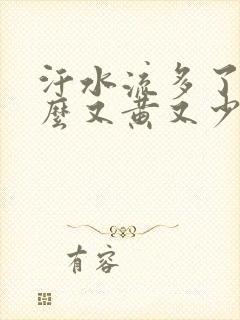 汗水流多了
麼又黄又少
有容